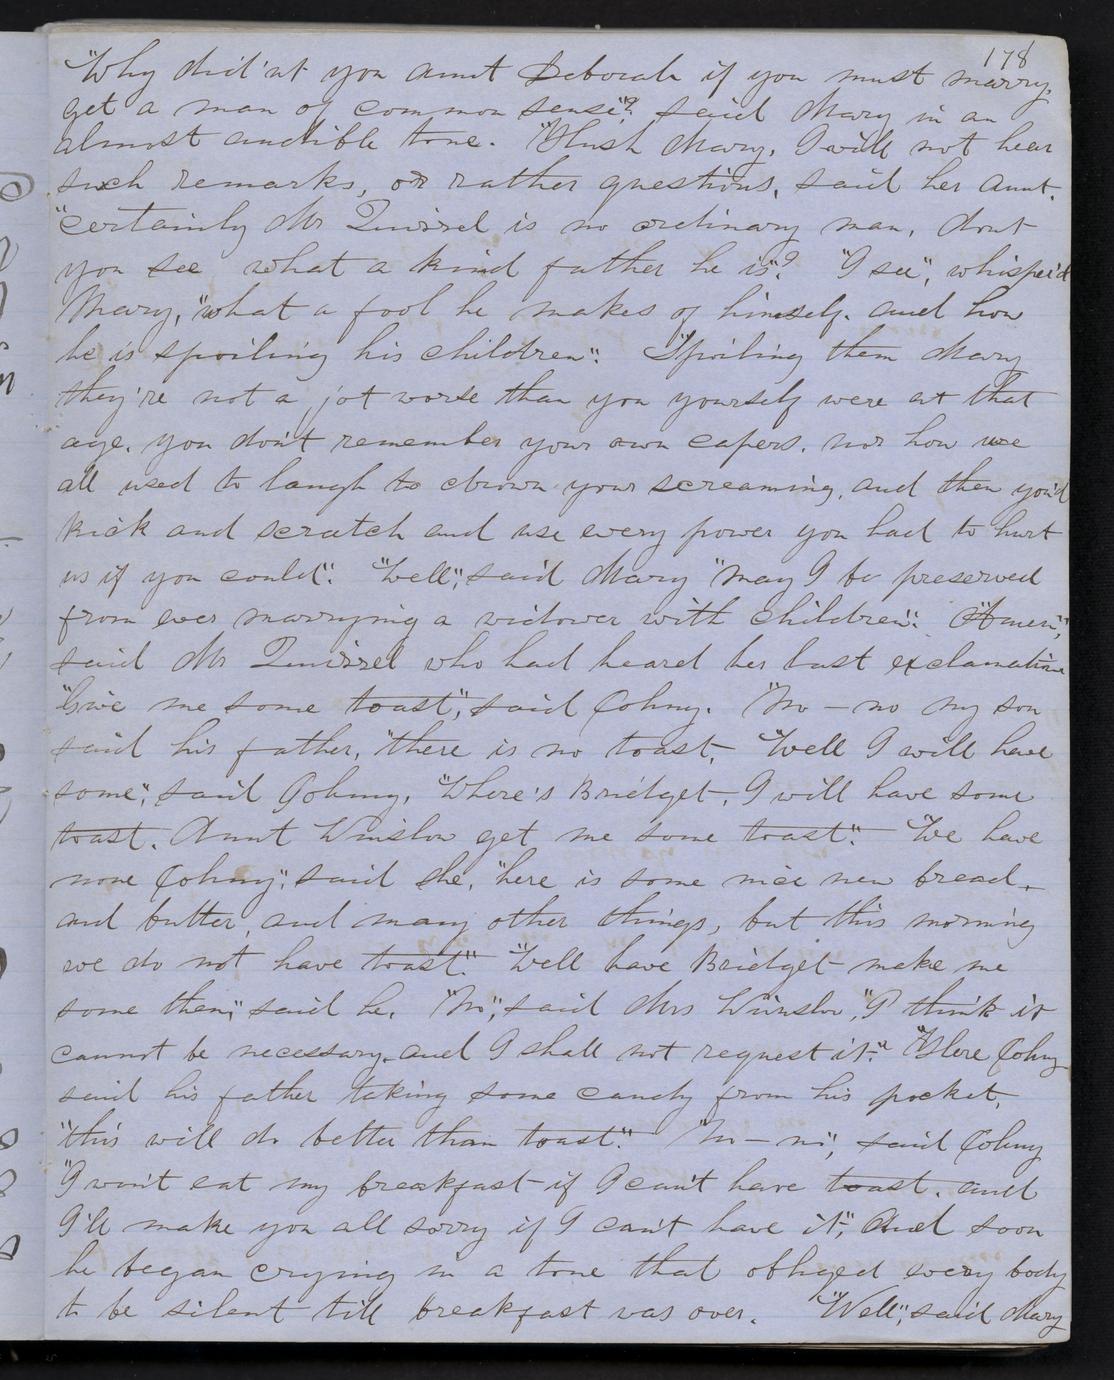 178
"Why did'nt you aunt Deborah if you must marry,
get a man of common sense"? said Mary in an
almost audible tone. "Hush Mary, I will not hear
such remarks, or rather questions, said her aunt.
"certainly Mr Quirrel is no ordinary man, dont
you see what a kind father he is"? "I see", whisper'd
Mary, "what a fool he makes of himself. and how
he is spoiling his children". "Spoiling them Mary
they're not a jot worse than you yourself were at that
age. you don't remember your own capers. nor how we
all used to laugh to drown your screaming, and then you'd
kick and scratch and use every power you had to hurt
us if you could". "Well", said Mary "may I be preserved
from ever marrying a widower with children". "Amen",
said Mr Quirrel who had heard her last exclamation
"Give me some toast", said Johny. "No – no my son
said his father, "there is no toast, "Well I will have
some", said Johny, "Where's Bridget, I will have some
toast. Aunt Winslow get me some toast". "We have
none Johny", said she, "here is some nice new bread,
and butter, and many other things, but this morning
we do not have toast". "Well have Bridget make me
some then", said he. "No", said Mrs Winslow, "I think it
cannot be necessary, and I shall not request it". "Here Johny
said his father taking some candy from his pocket,
"this will do better than toast". "No – no", said Johny
"I won't eat my breakfast if I can't have toast. and
I'll make you all sorry if I can't have it". And soon
he began crying in a tone that obliged every body
to be silent till breakfast was over. "Well", said Mary